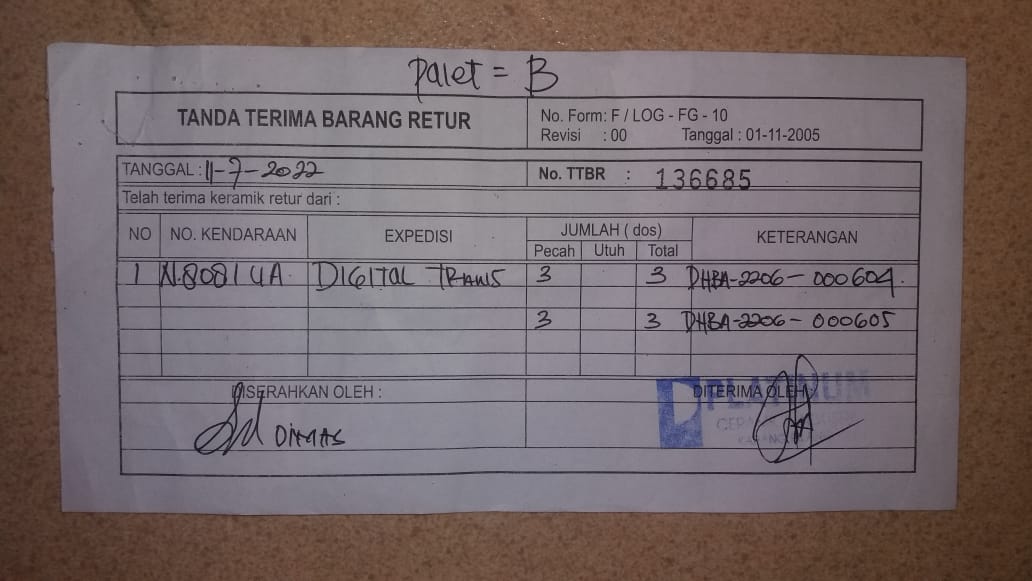 Palet = B
TANDA TERIMA BARANG RETUR
No. Form: F / LOG - FG - 10
Revisi : 00 Tanggal : 01-11-2005
TANGGAL : 11-7-2022 No. TTBR : 136685
Telah terima keramik retur dari :
NO NO. KENDARAAN EXPEDISI JUMLAH ( dos) KETERANGAN
Pecah Utuh Total
1 N.8081 UA. DIGITAL TRANS 3 3 DHBA-2206-000604.
3 3 DHBA-2206-000605
DISERAHKAN OLEH : DITERIMA OLEH :
PLATINUM
DIMAS